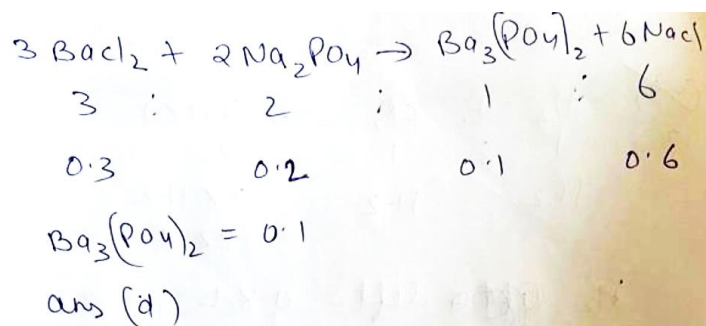 3 BaCl2 + 2Na2PO4 → Ba3(PO4)2 + 6NaCl
3 : 2 : 1 : 6
0.3 0.2 0.1 0.6
Ba3(PO4)2 = 0.1
ans (d)